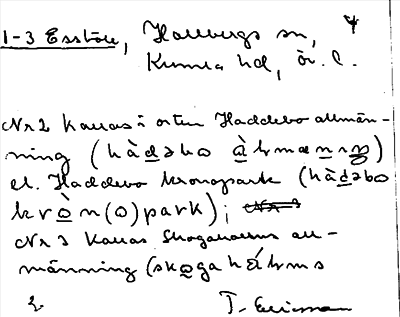 1-3 Esstorp, Hallsbergs sn,
Kumla hd, ör. l.
Nr 2 kallas i orten Haddebo allmän-
ning (hàdəbo àlmænıŋ)
el. Haddebo kronopark (hàdəbo
kròn(o)park); Nr 3
Nr 3 kallas Skogaholms all-
männing (skogahålms
2 T. Ericsson